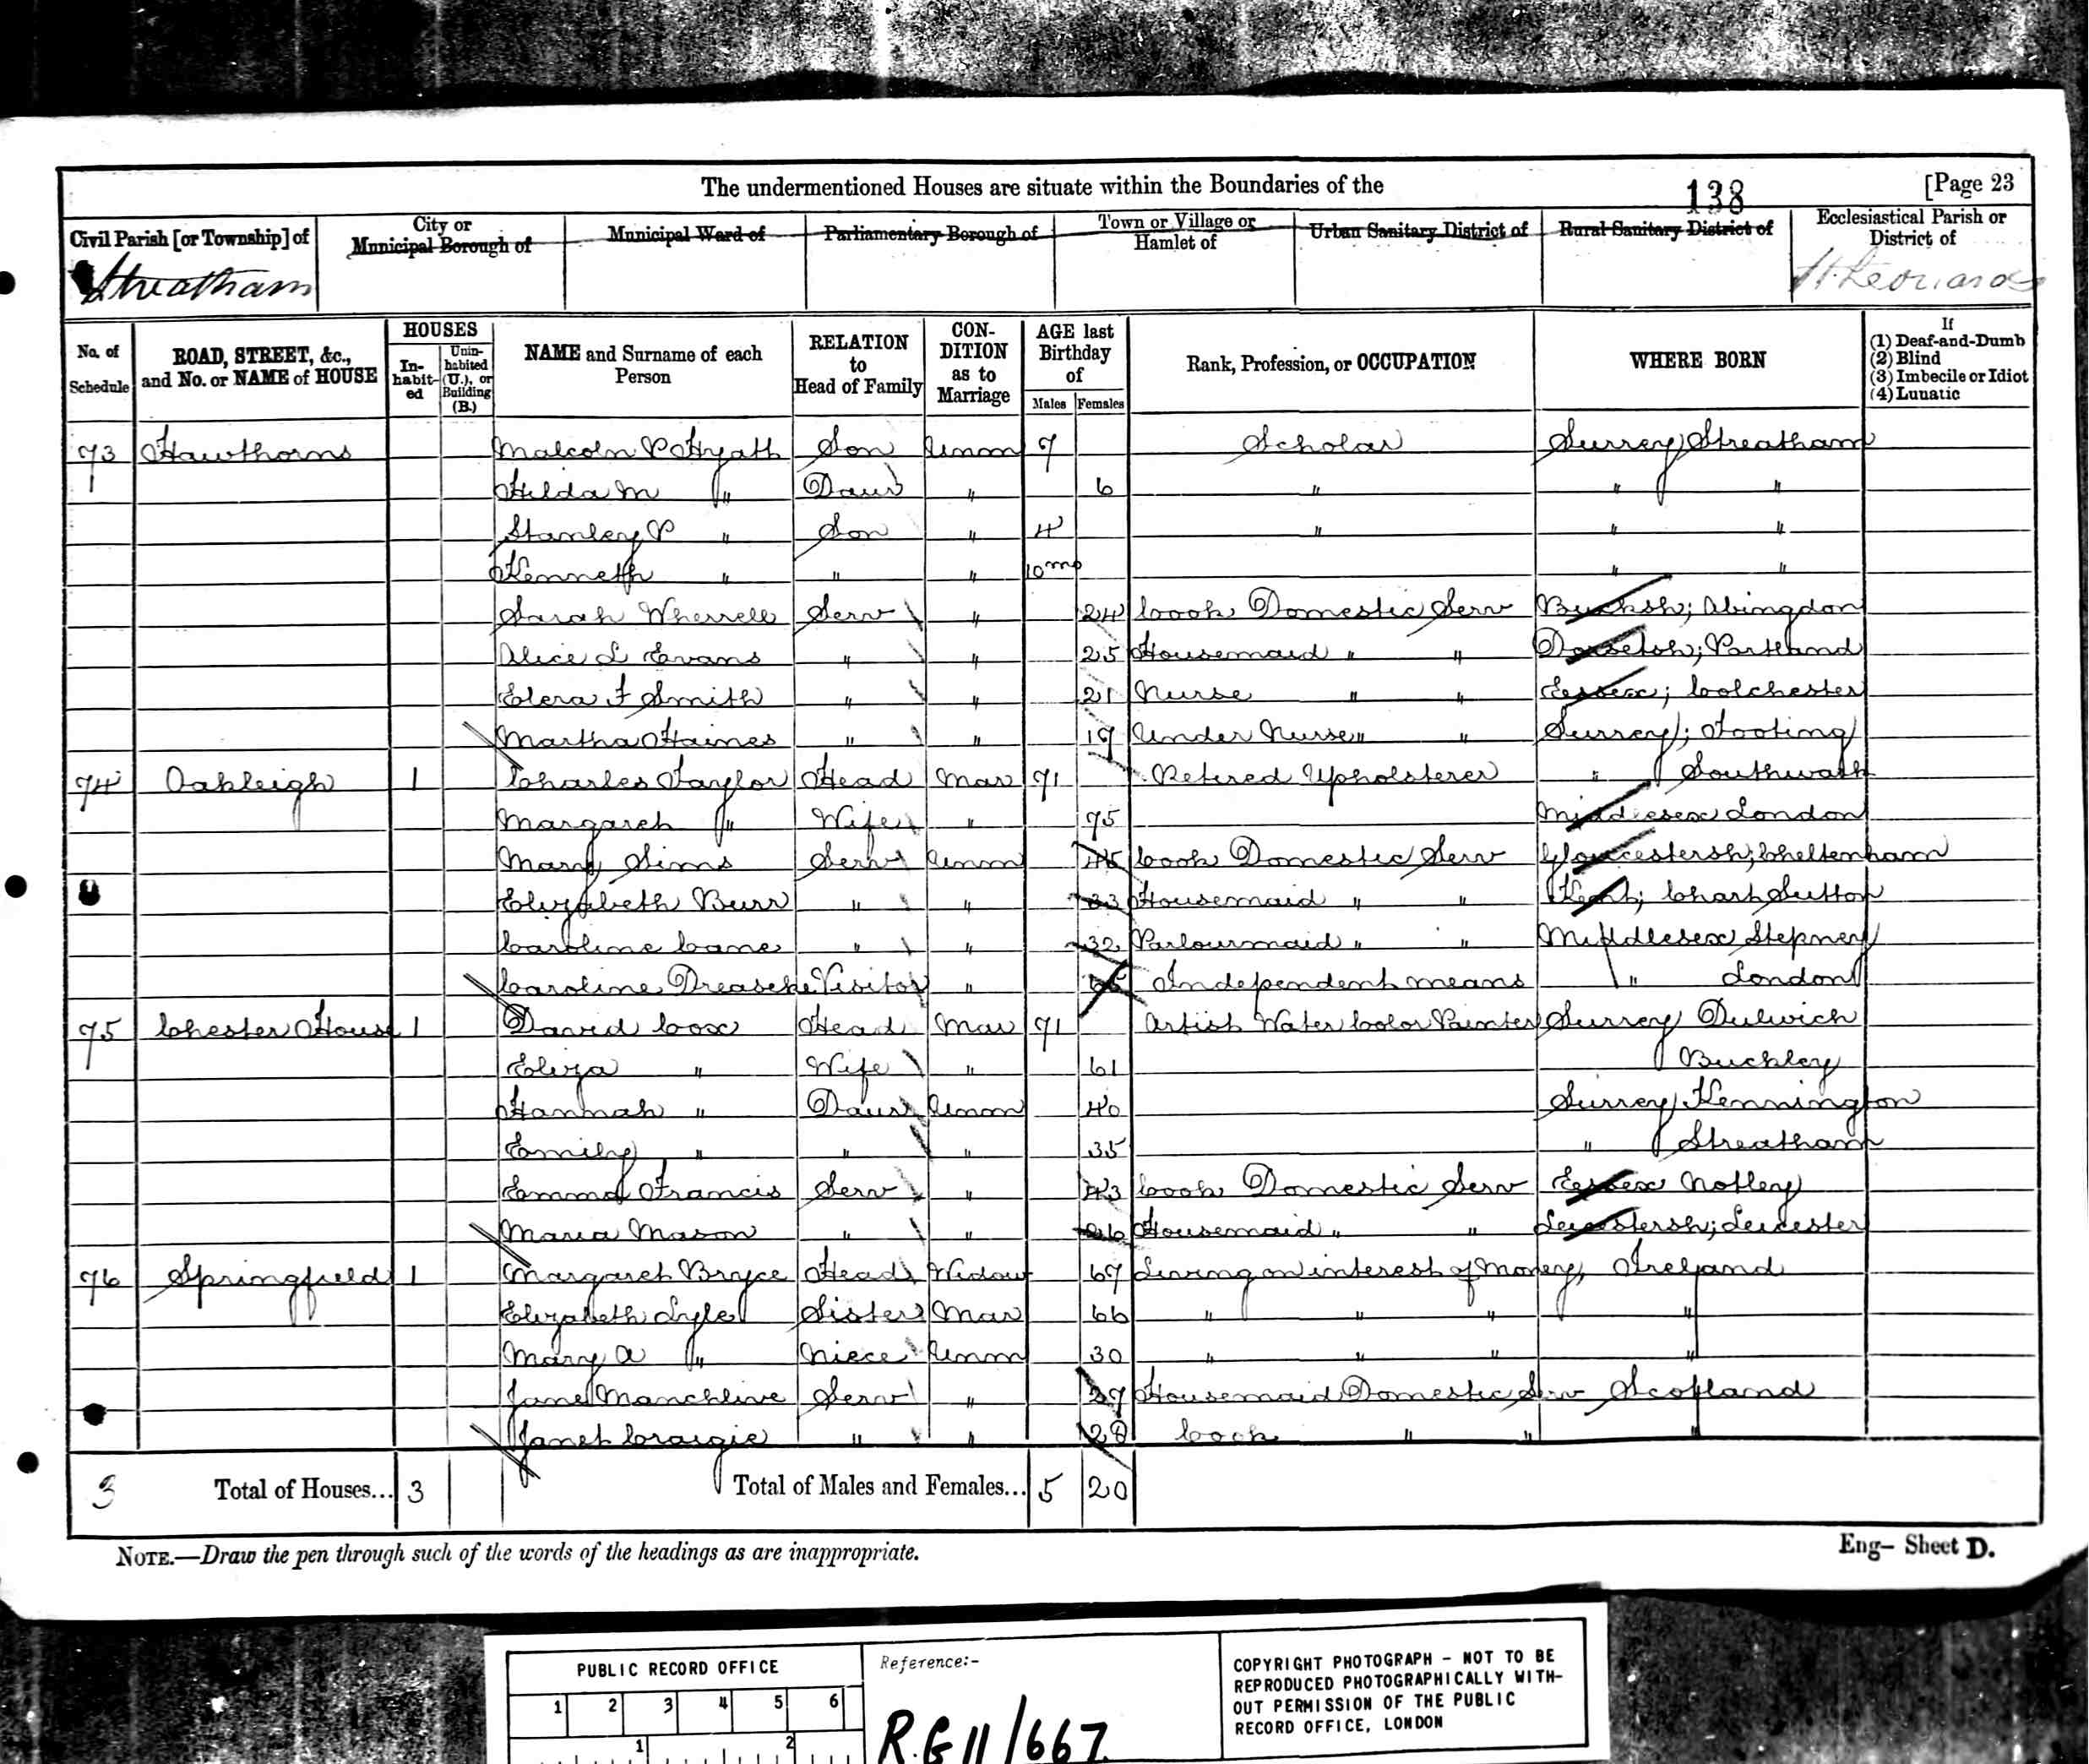 The undermentioned Houses are situate within the Boundaries of the 138 [Page 23
Civil Parish [or Township] of City or Municipal Borough of Municipal Ward of Parliamentary Borough of Town or Village or Hamlet of Urban Sanitary District of Rural Sanitary District of Ecclesiastical Parish or District of
Streatham St. Leonards
No. of Schedule ROAD, STREET, &c., and No. or NAME of HOUSE HOUSES In-habit-ed Unin-habited (U.), or Building (B.) NAME and Surname of each Person RELATION to Head of Family CON-DITION as to Marriage AGE last Birthday of Males Females Rank, Profession, or OCCUPATION WHERE BORN If (1) Deaf-and-Dumb (2) Blind (3) Imbecile or Idiot (4) Lunatic
73 Hawthorns Malcolm P Hyatt Son Unm 7 Scholar Surrey Streatham
Hilda M " Daur " 6 " " "
Stanley P " Son " 4 " " "
Kenneth " " " 10 mo " "
Sarah Wherrell Serv " 24 Cook Domestic Serv Bucksh; Abingdon
Alice L Evans " " 25 Housemaid " " Dorsetsh; Portland
F Smith " " 21 Nurse " " Essex; Colchester
Martha Haines " " 19 Under Nurse " " Surrey; Tooting
74 Oakleigh 1 Charles Taylor Head Mar 71 Retired Upholsterer " Southwark
Margaret " Wife " 75 Middlesex London
Mary Sims Serv Unm 45 Cook Domestic Serv Gloucestersh; Cheltenham
Elizabeth Burr " " 33 Housemaid " " Kent; Chart Sutton
Caroline Cane " " 32 Parlourmaid " " Middlesex Stepney
Caroline Visitor " Independent means " London
75 Chester House 1 David Cox Head Mar 71 Artist Water Color Painter Surrey Dulwich
Eliza " Wife " 61 Buckley
Hannah " Daur Unm 40 Surrey Kennington
Emily " " " 35 " Streatham
Emma Francis Serv " 43 Cook Domestic Serv Essex Notley
Maria Mason " " 26 Housemaid " " Leicestersh; Leicester
76 Springfield 1 Margaret Bryce Head Widow 67 Living on interest of Money, Ireland
Elizabeth Lyle Sister Mar 66 " " " "
Mary A " Niece Unm 30 " " " "
Jane Manchline Serv " 27 Housemaid Domestic Serv Scotland
Janet Craigie " " 28 Cook " " "
3 Total of Houses... 3 Total of Males and Females... 5 20
NOTE.—Draw the pen through such of the words of the headings as are inappropriate. Eng- Sheet D.
PUBLIC RECORD OFFICE
1 2 3 4 5 6
1 2
Reference:-
R.G 11/667
COPYRIGHT PHOTOGRAPH - NOT TO BE
REPRODUCED PHOTOGRAPHICALLY WITH-
OUT PERMISSION OF THE PUBLIC
RECORD OFFICE, LONDON